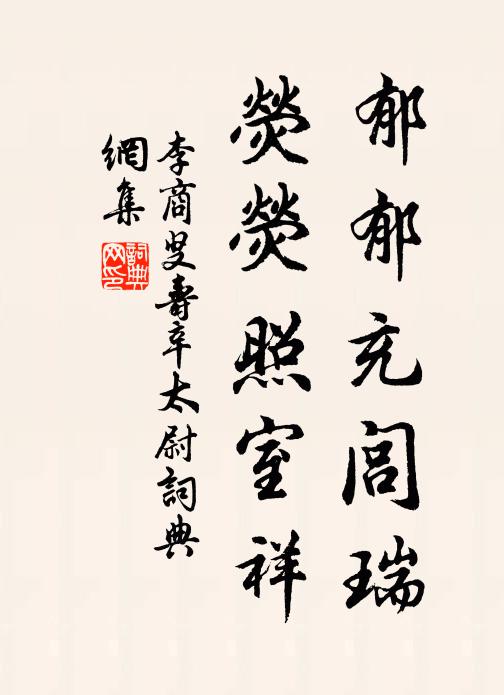 郁郁充閭瑞
熒熒照室祥
李商叟壽辛太尉詞典
網集
詞典網印